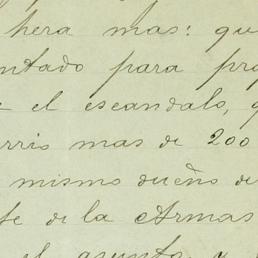 hera mas: qu
ntado para pro
el escandalo, q
rris mas de 200
mismo dueño de
te de la Armas
el asunto y